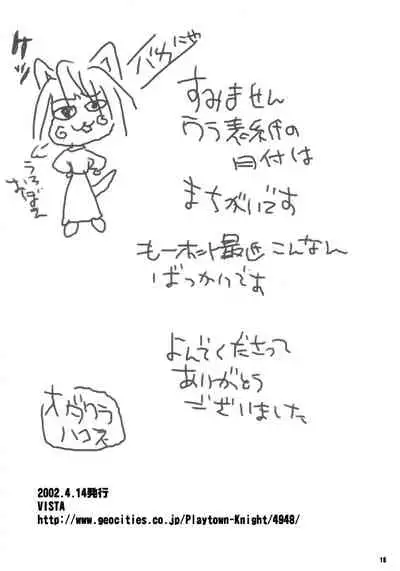 ケッ
バカにゃ
うろおぼえ
すみません
ウラ表紙の
日付は
まちがいです
もーホント最近こんなん
ばっかりです
よんでくださって
ありがとう
ございました
オガワラ
ハコズ
2002.4.14発行
VISTA
http://www.geocities.co.jp/Playtown-Knight/4948/
18